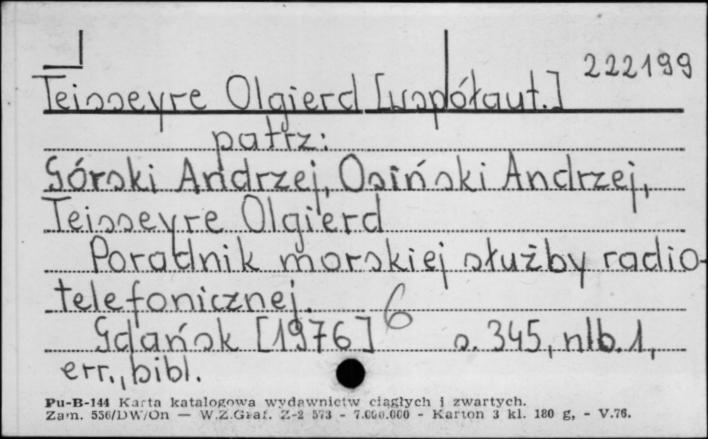 222199
Teisseyre Olgierd [współaut.]
patrz:
Górski Andrzej, Osiński Andrzej,
Teisseyre Olgierd
Poradnik morskiej służby radio-
telefonicznej.
6
Gdańsk [1976] s. 345, nlb. 1,
err., bibl.
Pu-B-144 Karta katalogowa wydawnictw ciągłych i zwartych.
Zam. 556/DW/On — W.Z.Graf. Z-2 573 - 7.000.000 - Karton 3 kl. 180 g, - V.76.